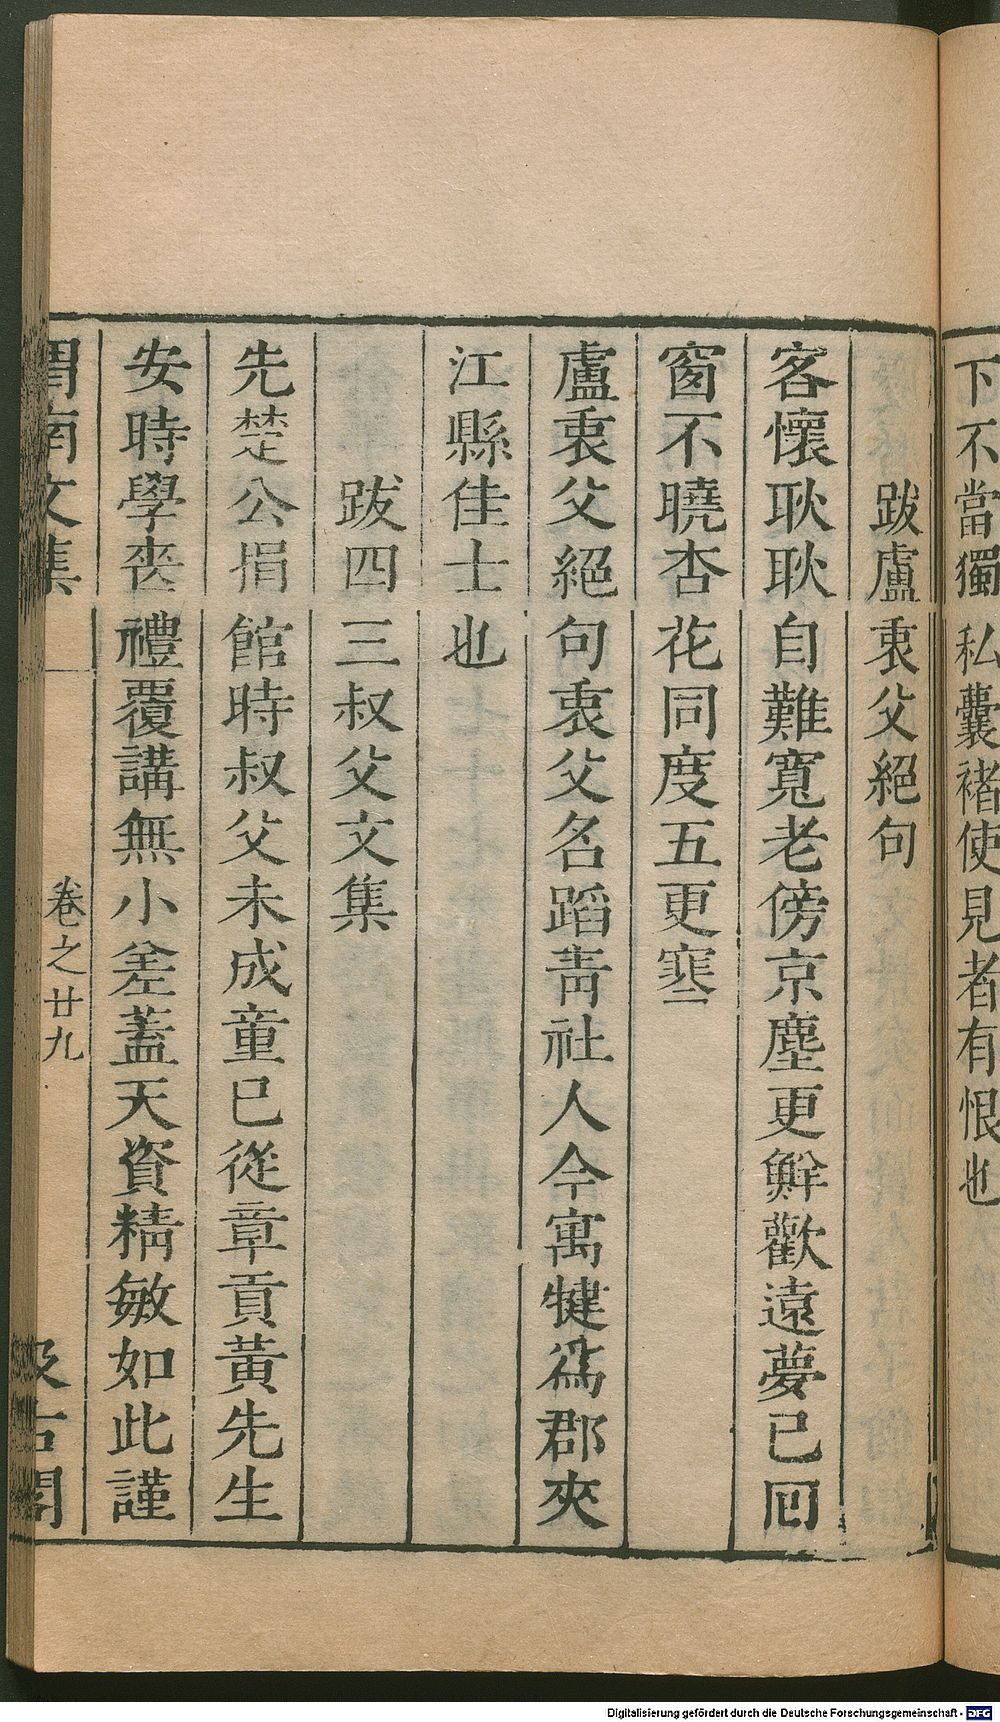 下不當獨私囊褚使見者有恨也
跋盧衷父絕句
客懷耿耿自難寬老傍京塵更鮮歡遠夢已囘
窗不曉杏花同度五更寒
盧衷父絕句衷父名蹈靑社人今寓犍爲郡夾
江縣佳士也
跋四三叔父文集
先楚公捐館時叔父未成童已從章貢黃先生
安時學喪禮覆講無小差蓋天資精敏如此謹
渭南文集
卷之廿九
汲古閣
Digitalisierung gefördert durch die Deutsche Forschungsgemeinschaft - DFG